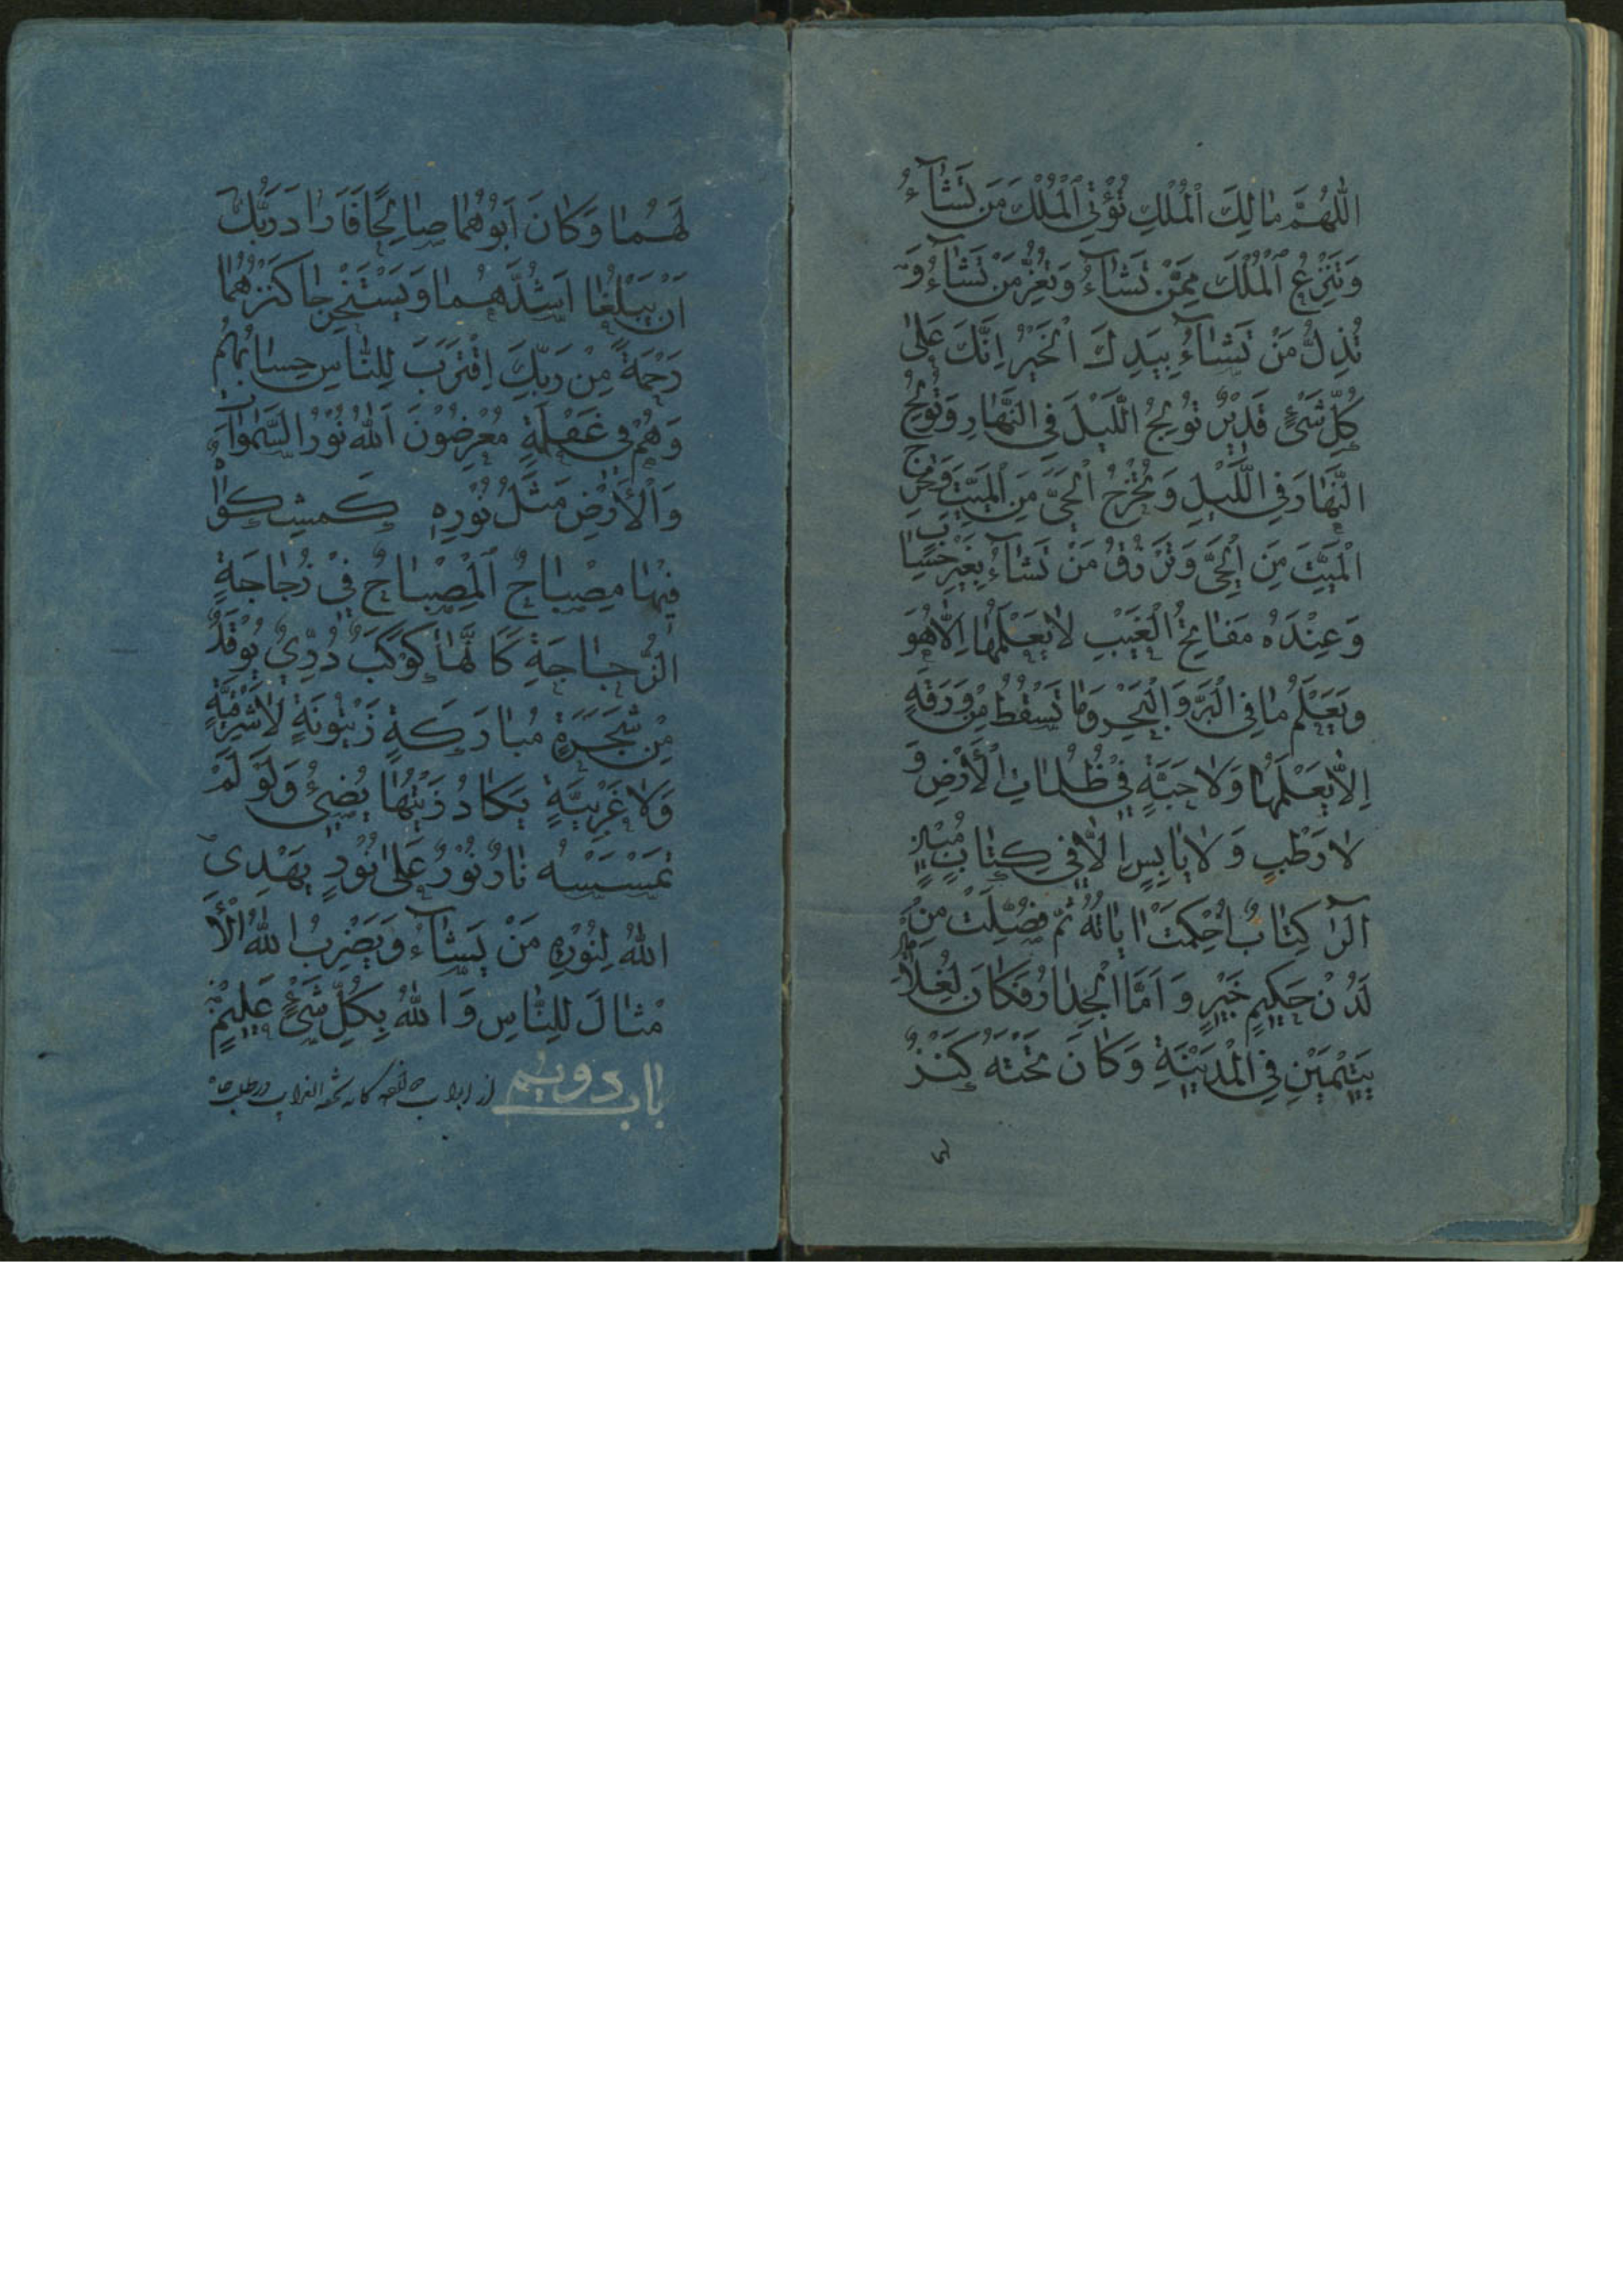 اَللّٰهُمَّ مٰالِكَ الْمُلْكِ تُؤْتِي الْمُلْكَ مَنْ تَشٰآءُ
وَتَنْزِعُ الْمُلْكَ مِمَّنْ تَشٰآءُ وَتُعِزُّ مَنْ تَشٰآءُ وَ
تُذِلُّ مَنْ تَشٰآءُ بِيَدِكَ الْخَيْرُ اِنَّكَ عَلىٰ
كُلِّ شَيْءٍ قَدِيْرٌ تُوْلِجُ اللَّيْلَ فِي النَّهٰارِ وَتُوْلِجُ
النَّهٰارَ فِي اللَّيْلِ وَتُخْرِجُ الْحَيَّ مِنَ الْمَيِّتِ وَتُخْرِجُ
الْمَيِّتَ مِنَ الْحَيِّ وَتَرْزُقُ مَنْ تَشٰآءُ بِغَيْرِ حِسٰابٍ
وَعِنْدَهُ مَفٰاتِحُ الْغَيْبِ لٰا يَعْلَمُهٰا اِلّٰا هُوَ
وَيَعْلَمُ مٰا فِي الْبَرِّ وَالْبَحْرِ وَمٰا تَسْقُطُ مِنْ وَرَقَةٍ
اِلّٰا يَعْلَمُهٰا وَلٰا حَبَّةٍ فِيْ ظُلُمٰاتِ الْأَرْضِ وَ
لٰا رَطْبٍ وَلٰا يٰابِسٍ اِلّٰا فِي كِتٰابٍ مُبِيْنٍ
الٓرٰ كِتٰابٌ اُحْكِمَتْ اٰيٰاتُهُ ثُمَّ فُصِّلَتْ مِنْ
لَدُنْ حَكِيمٍ خَبِيْرٍ وَاَمَّا الْجِدٰارُ فَكٰانَ لِغُلٰامَيْنِ
يَتِيْمَيْنِ فِي الْمَدِيْنَةِ وَكٰانَ تَحْتَهُ كَنْزٌ
لَهُمٰا وَكٰانَ اَبُوْهُمٰا صٰالِحًا فَاَرٰادَ رَبُّكَ
اَنْ يَبْلُغٰا اَشُدَّهُمٰا وَيَسْتَخْرِجٰا كَنْزَهُمٰا
رَحْمَةً مِنْ رَبِّكَ اِقْتَرَبَ لِلنّٰاسِ حِسٰابُهُمْ
وَهُمْ فِي غَفْلَةٍ مُعْرِضُوْنَ اَللّٰهُ نُوْرُ السَّمٰوٰاتِ
وَالْأَرْضِ مَثَلُ نُوْرِهِ كَمِشْكٰوةٍ
فِيْهٰا مِصْبٰاحٌ اَلْمِصْبٰاحُ فِيْ زُجٰاجَةٍ
الزُّجٰاجَةِ كَأَنَّهٰا كَوْكَبٌ دُرِّيٌّ يُوْقَدُ
مِنْ شَجَرَةٍ مُبٰارَكَةٍ زَيْتُونَةٍ لٰا شَرْقِيَّةٍ
وَلٰا غَرْبِيَّةٍ يَكٰادُ زَيْتُهٰا يُضِيْئُ وَلَوْ لَمْ
تَمْسَسْهُ نٰارٌ نُوْرٌ عَلىٰ نُوْرٍ يَهْدِي
اللّٰهُ لِنُوْرِهِ مَنْ يَشٰآءُ وَيَضْرِبُ اللّٰهُ الْأَ
مْثٰالَ لِلنّٰاسِ وَاللّٰهُ بِكُلِّ شَيْءٍ عَلِيْمٌ
باب دویم از ابواب